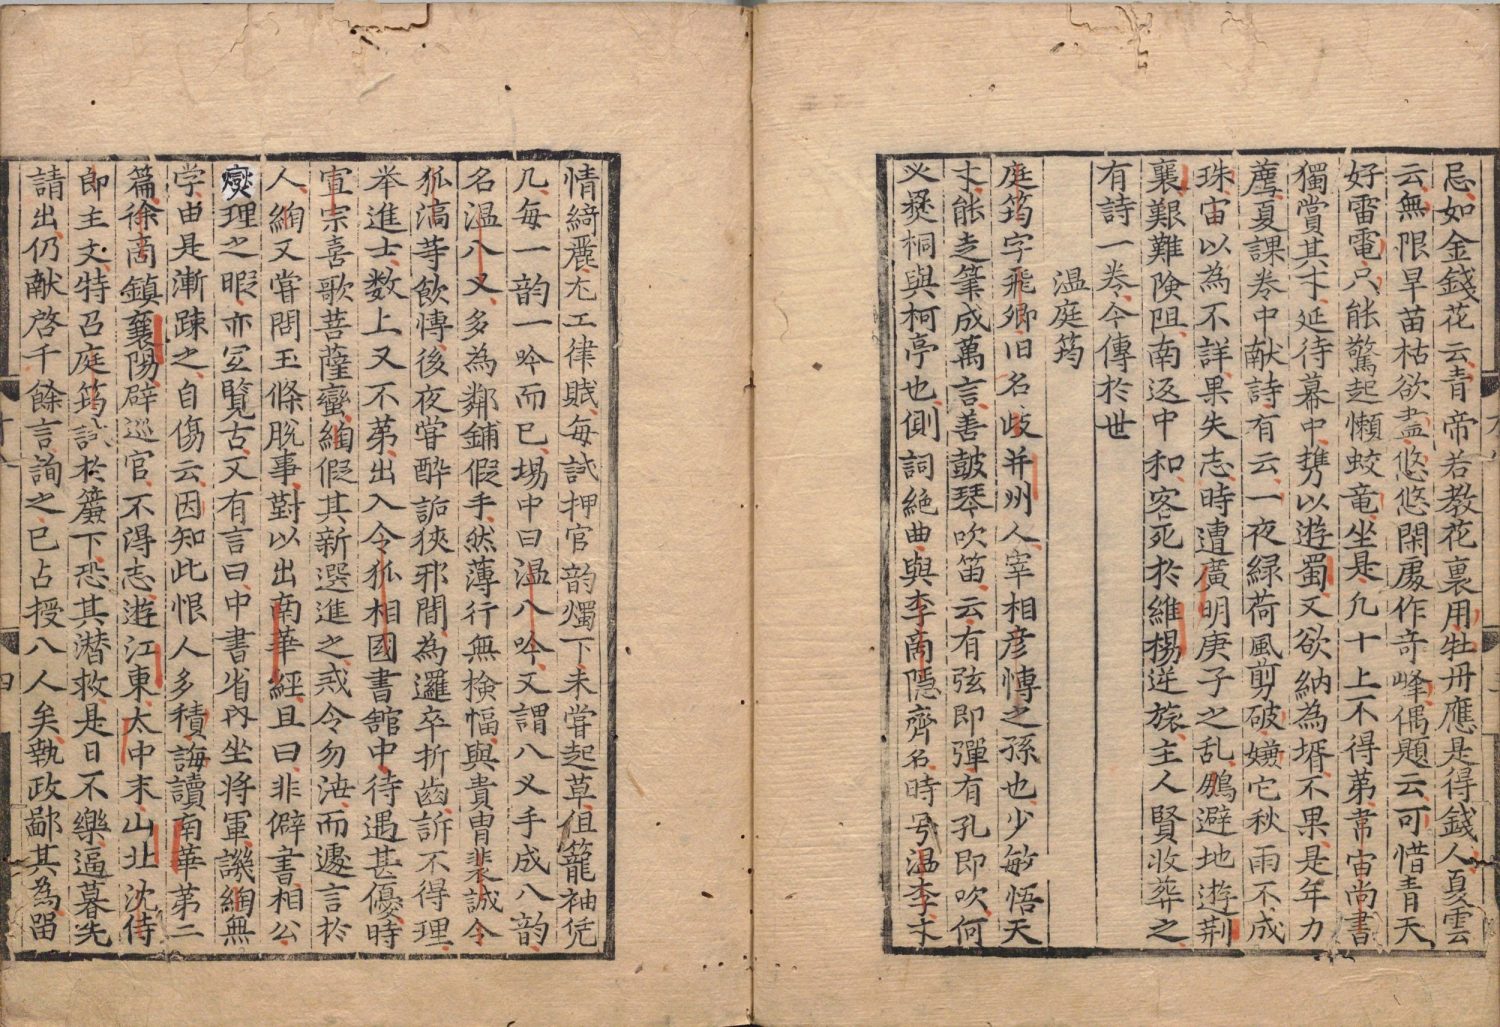 忌如金錢花云青帝若教花裏用牡丹應是得錢人夏雲
云無限旱苗枯欲盡悠悠閑處作竒峰偶題云可惜青天
好雷電只能驚起懶蛟竜坐是九十上不得苐常宙尚書
獨賞其才延待幕中携以遊蜀又欲納為壻不果是年力
蘑夏課巻中献詩有云一夜緑荷風剪破嫌它秋雨不成
珠宙以為不詳果失志時遭廣明庚子之乱鵬避地遊荆
襄艱難険阻南返中和客死於維楊逆旅主人賢收葬之
有詩一巻今傳於世
温庭筠
庭筠字飛卿旧名岐并州人宰相彦愽之孫也少敏悟天
才能走筆成萬言善皷琴吹笛云有弦即彈有孔即吹何
必㸑桐與柯亭也側詞絶曲與李商隠齊名時号温李才
情綺麗尤工律賦毎試押官韵燭下未甞起草但籠袖凭
几毎一韵一吟而已場中曰温八吟又謂八叉手成八韵
名温八叉多為鄰鋪假手然薄行無検幅與貴胄裴諴令
狐滈䓁飲愽後夜甞酔詬狹邪間為邏卒折齒訴不得理
举進士数上又不苐出入令狐相國書舘中待遇甚優時
宣宗喜歌菩薩蠻綯假其新選進之戒令勿洩而遽言於
人綯又甞問玉條脱事對以出南華經且曰非僻書相公
爕理之暇亦宜覧古又有言曰中書省內坐将軍譏綯無
学由是漸踈之自傷云因知此恨人多積誨讀南華苐二
篇徐商鎮襄陽辟巡官不淂志遊江東大中末山北沈侍
郎主文特召庭筠試於簾下恐其潜救是日不樂逼暮先
請出仍献啓千餘言詢之已占授八人矣執政鄙其為畱